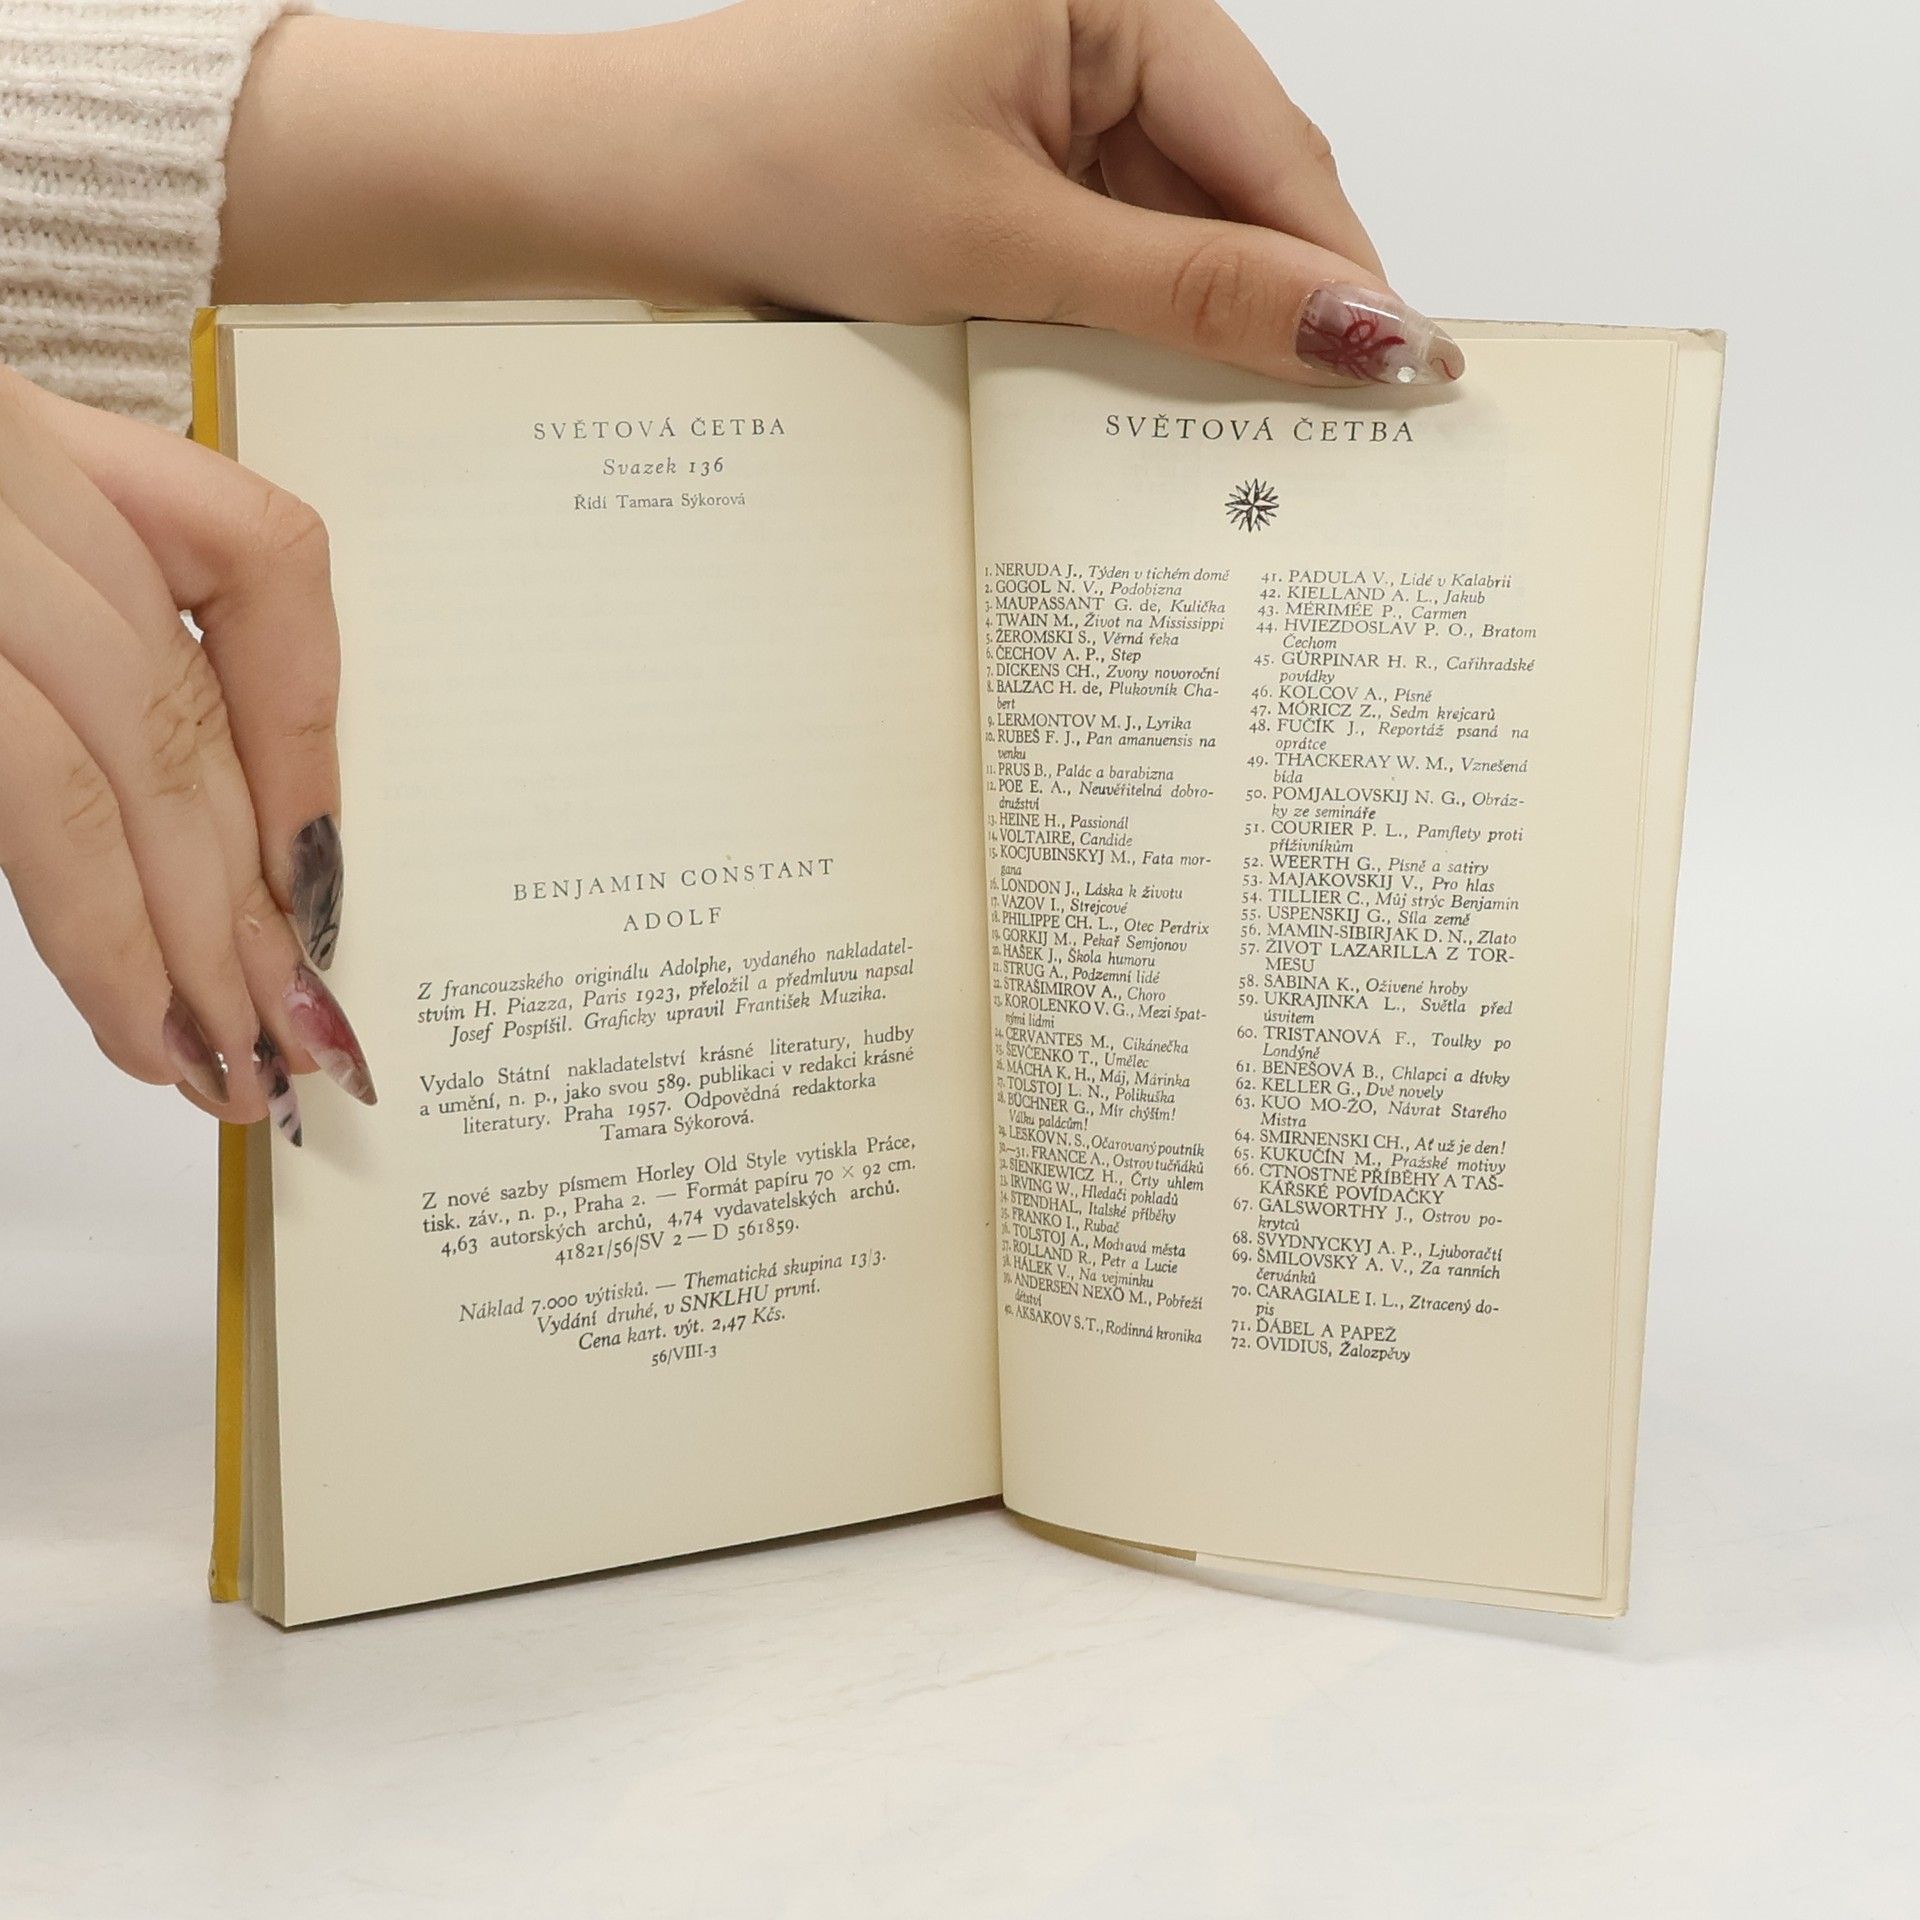 SVĚTOVÁ ČETBA
Svazek 136
Řídí Tamara Sýkorová
BENJAMIN CONSTANT
ADOLF
Z francouzského originálu Adolphe, vydaného nakladatel-
stvím H. Piazza, Paris 1923, přeložil a předmluvu napsal
Josef Pospíšil. Graficky upravil František Muzika.
Vydalo Státní nakladatelství krásné literatury, hudby
a umění, n. p., jako svou 589. publikaci v redakci krásné
literatury. Praha 1957. Odpovědná redaktorka
Tamara Sýkorová.
Z nové sazby písmem Horley Old Style vytiskla Práce,
tisk. záv., n. p., Praha 2. — Formát papíru 70 × 92 cm.
4,63 autorských archů, 4,74 vydavatelských archů.
41821/56/SV 2 — D 561859.
Náklad 7.000 výtisků. — Thematická skupina 13/3.
Vydání druhé, v SNKLHU první.
Cena kart. výt. 2,47 Kčs.
56/VIII-3
SVĚTOVÁ ČETBA
1. NERUDA J., Týden v tichém domě
2. GOGOL N. V., Podobizna
3. MAUPASSANT G. de, Kulička
4. TWAIN M., Život na Mississippi
5. ŽEROMSKI S., Věrná řeka
6. ČECHOV A. P., Step
7. DICKENS CH., Zvony novoroční
8. BALZAC H. de, Plukovník Cha-
bert
9. LERMONTOV M. J., Lyrika
10. RUBEŠ F. J., Pan amanuensis na
venku
11. PRUS B., Palác a barabizna
12. POE E. A., Neuvěřitelná dobro-
družství
13. HEINE H., Passionál
14. VOLTAIRE, Candide
15. KOCJUBINSKYJ M., Fata mor-
gana
16. LONDON J., Láska k životu
17. VAZOV I., Strejcové
18. PHILIPPE CH. L., Otec Perdrix
19. GORKIJ M., Pekař Semjonov
20. HAŠEK J., Škola humoru
21. STRUG A., Podzemní lidé
22. STRAŠIMIROV A., Choro
23. KOROLENKO V. G., Mezi špat-
nými lidmi
24. CERVANTES M., Cikánečka
25. ŠEVČENKO T., Umělec
26. MÁCHA K. H., Máj, Márinka
27. TOLSTOJ L. N., Polikuška
28. BÜCHNER G., Mír chýším!
Válku palácům!
29. LESKOV N. S., Očarovaný poutník
30.—31. FRANCE A., Ostrov tučňáků
32. SIENKIEWICZ H., Črty uhlem
33. IRVING W., Hledači pokladů
34. STENDHAL, Italské příběhy
35. FRANKO I., Rubač
36. TOLSTOJ A., Modravá města
37. ROLLAND R., Petr a Lucie
38. HÁLEK V., Na vejminku
39. ANDERSEN NEXÖ M., Pobřeží
dětství
40. AKSAKOV S. T., Rodinná kronika
41. PADULA V., Lidé v Kalabrii
42. KIELLAND A. L., Jakub
43. MÉRIMÉE P., Carmen
44. HVIEZDOSLAV P. O., Bratom
Čechom
45. GÜRPINAR H. R., Cařihradské
povídky
46. KOLCOV A., Písně
47. MÓRICZ Z., Sedm krejcarů
48. FUČÍK J., Reportáž psaná na
oprátce
49. THACKERAY W. M., Vznešená
bída
50. POMJALOVSKIJ N. G., Obráz-
ky ze semináře
51. COURIER P. L., Pamflety proti
příživníkům
52. WEERTH G., Písně a satiry
53. MAJAKOVSKIJ V., Pro hlas
54. TILLIER C., Můj strýc Benjamin
55. USPENSKIJ G., Síla země
56. MAMIN-SIBIRJAK D. N., Zlato
57. ŽIVOT LAZARILLA Z TOR-
MESU
58. SABINA K., Oživené hroby
59. UKRAJINKA L., Světla před
úsvitem
60. TRISTANOVÁ F., Toulky po
Londýně
61. BENEŠOVÁ B., Chlapci a dívky
62. KELLER G., Dvě novely
63. KUO MO-ŽO, Návrat Starého
Mistra
64. SMIRNENSKI CH., Ať už je den!
65. KUKUČÍN M., Pražské motivy
66. CTNOSTNÉ PŘÍBĚHY A TAŠ-
KÁŘSKÉ POVÍDAČKY
67. GALSWORTHY J., Ostrov po-
krytců
68. SVYDNYCKYJ A. P., Ljuboračtí
69. ŠMILOVSKÝ A. V., Za ranních
červánků
70. CARAGIALE I. L., Ztracený do-
pis
71. ĎÁBEL A PAPEŽ
72. OVIDIUS, Žalozpěvy